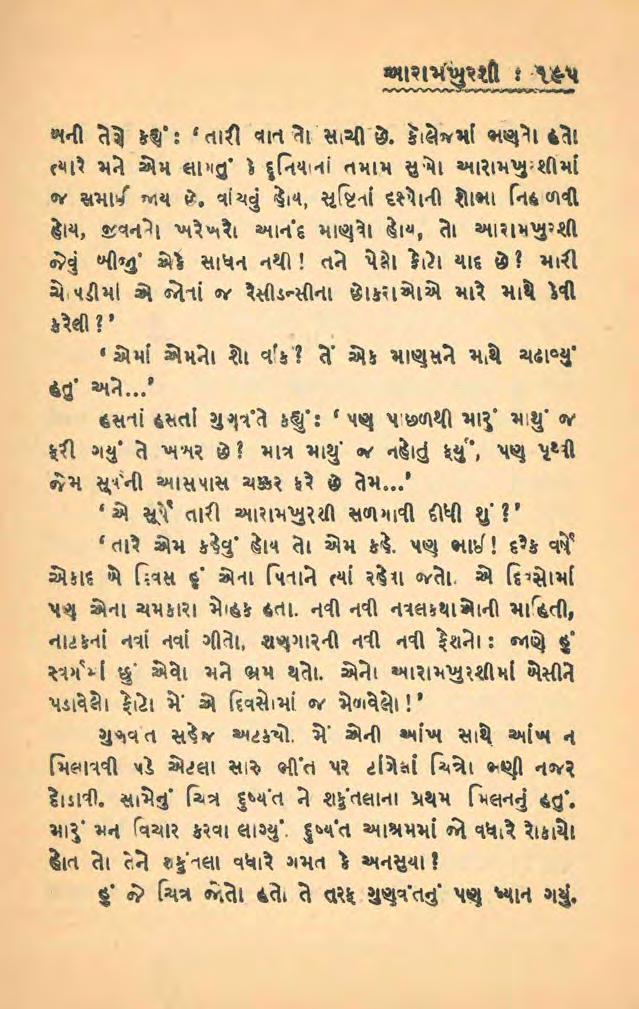 આરામખુરશી : ૧૯૫
બની તેણે કહ્યું : ‘તારી વાત તો સાચી છે. કૉલેજમાં ભણતો હતો
ત્યારે મને એમ લાગતું કે દુનિયાનાં તમામ સુખો આરામખુરશીમાં
જ સમાઈ જાય છે. વાંચવું હોય, સૃષ્ટિનાં દશ્યોની શોભા નિહાળવી
હોય, જીવનનો ખરેખરો આનંદ માણવો હોય, તો આરામખુરશી
જેવું બીજું એકે સાધન નથી ! તને પેલો ફોટો યાદ છે ? મારી
ચોપડીમાં એ જોતાં જ રેસીડન્સીના છોકરાઓએ મારે માથે કેવી
કરેલી ?’
‘એમાં એમનો શો વાંક ? તેં એક માણસને માથે ચઢાવ્યું
હતું અને...’
હસતાં હસતાં ગુણવંતે કહ્યું : ‘પણ પાછળથી મારું માથું જ
ફરી ગયું તે ખબર છે ? માત્ર માથું જ નહોતું ફર્યું, પણ પૃથ્વી
જેમ સૂર્યની આસપાસ ચક્કર ફરે છે તેમ...’
‘એ સૂર્યે તારી આરામખુરશી સળગાવી દીધી શું ?’
‘તારે એમ કહેવું હોય તો એમ કહે. પણ ભાઈ ! દરેક વર્ષે
એકાદ બે દિવસ હું એના પિતાને ત્યાં રહેવા જતો. એ દિવસોમાં
પણ એના ચમકારા મોહક હતા. નવી નવી નવલકથાઓની માહિતી,
નાટકનાં નવાં નવાં ગીતો, શણગારની નવી નવી ફેશનો : જાણે હું
સ્વર્ગમાં છું એવો મને ભ્રમ થતો. એનો આરામખુરશીમાં બેસીને
પડાવેલો ફોટો મેં એ દિવસોમાં જ મેળવેલો !’
ગુણવંત સહેજ અટક્યો. મેં એની આંખ સાથે આંખ ન
મિલાવવી પડે એટલા સારુ ભીંત પર ટાંગેલાં ચિત્રો ભણી નજર
દોડાવી. સામેનું ચિત્ર દુષ્યંત ને શકુંતલાના પ્રથમ મિલનનું હતું.
મારું મન વિચાર કરવા લાગ્યું. દુષ્યંત આશ્રમમાં જો વધારે રોકાયો
હોત તો તેને શકુંતલા વધારે ગમત કે અનસુયા ?
હું જે ચિત્ર જોતો હતો તે તરફ ગુણવંતનું પણ ધ્યાન ગયું.